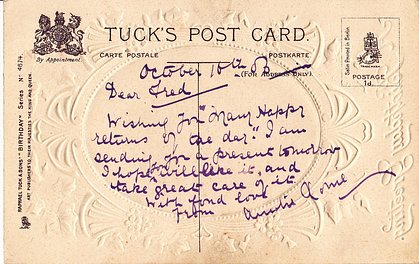 TUCK'S POST CARD.
CARTE POSTALE
POSTKARTE
By Appointment.
(FOR ADDRESS ONLY).
POSTAGE
RAPHAEL TUCK & SONS' "BIRTHDAY" Series No
ART PUBLISHERS TO THEIR MAJESTIES THE KING AND QUEEN.
October 10th
Dear Fred
Wishing you "Many Happy
returns of the day." I am
sending you a present tomorrow
I hope you will like it, and
take great care of it
With fond love
From Auntie